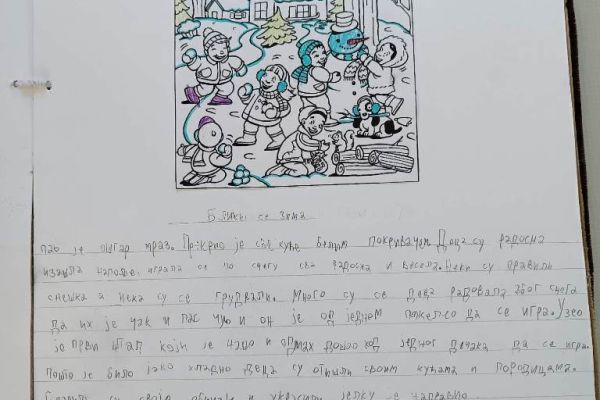 Ближи се зима
пао је мраз. Прикрио је све куће белим покривачем Деца су радосна
изашла напоље, играла се по снегу сва радосна и весела. Неки су правили
снешка а нека су се грудвали. Много су се деца радовала због снега
да их је чак и пас чуо и он је од једном пожелео да се игра. Узео
је први штап који је нашо и одмах дошао код једног дечака да се игра.
Пошто је било јако хладно деца су отишли својим кућама и породицама.
су своје и украсили јелку